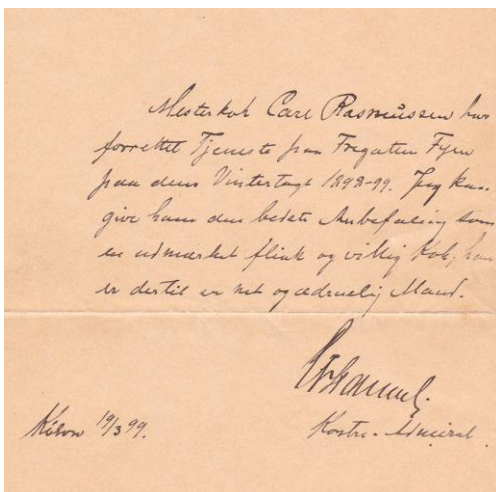 Mesterkok Carl Rasmussen har
forrettet Tjeneste paa Fregatten Fyen
paa dens Vintertogt 1898-99. Jeg kan
give ham den bedste Anbefaling som
en udmærket flink og villig Kok; han
er dertil en net og ædruelig Mand.
Kontre-Admiral.
19/3 99.